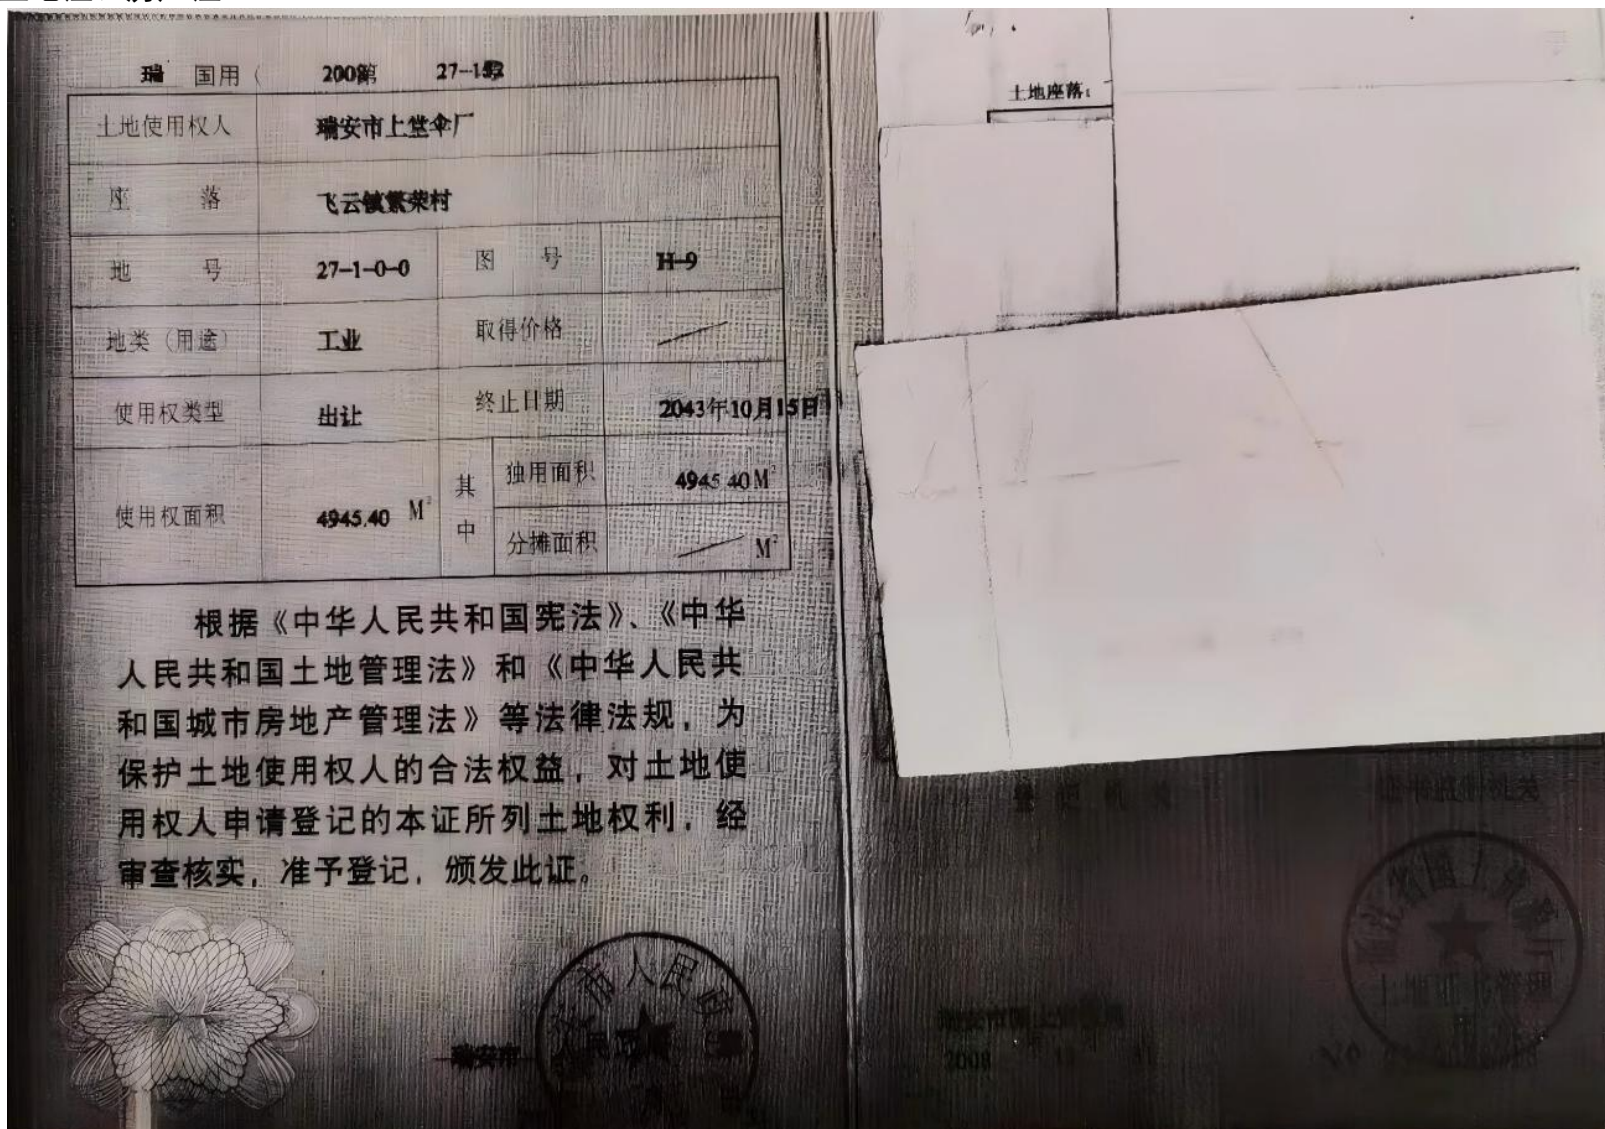 瑞 国用( 2008第 27-152
土地使用权人 瑞安市上堂伞厂
座 落 飞云镇繁荣村
地 号 27-1-0-0 图 号 H-9
地类(用途) 工业 取得价格
使用权类型 出让 终止日期 2043年10月15日
使用权面积 4945.40 M² 其中 独用面积 4945.40 M²
分摊面积 M²
根据《中华人民共和国宪法》、《中华
人民共和国土地管理法》和《中华人民共
和国城市房地产管理法》等法律法规,为
保护土地使用权人的合法权益,对土地使
用权人申请登记的本证所列土地权利,经
审查核实,准予登记,颁发此证。
瑞安市
市人民政
土地座落:
登记机关
2008